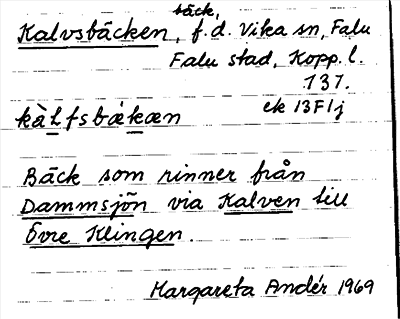 bäck,
Kalvsbäcken, f.d. Vika sn, Falu
Falu stad, Kopp. l.
137.
ek 13F1j
kàlfsbækæn
Bäck som rinner från
Dammsjön via Kalven till
Övre Klingen.
Margareta Andér 1969